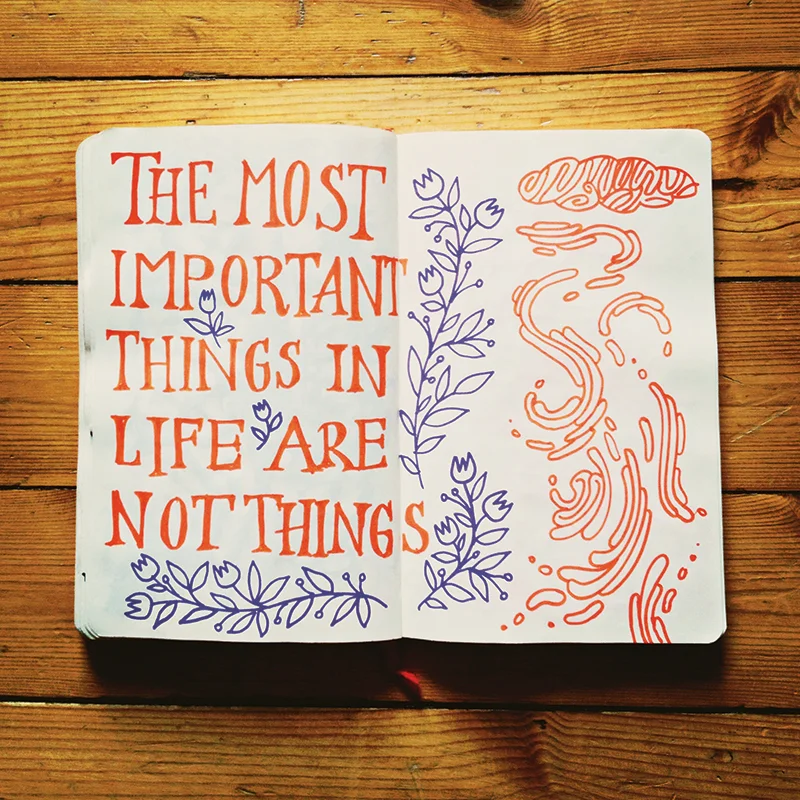 THE MOST
IMPORTANT
THINGS IN
LIFE ARE
NOT THINGS